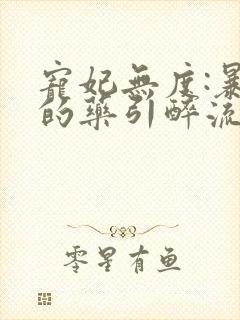 寵妃無度:暴
的藥引醉流
零星有鱼